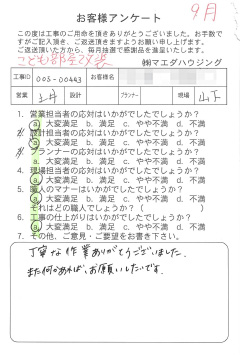 9月
お客様アンケート
この度は工事のご用命を頂きありがとうございました。お手数で
すがご記入頂き、ご返送頂きますようお願い申し上げます。
ご返送頂いた方から、毎月抽選で感謝品を進呈いたします。
こども部屋改装
㈱マエダハウジング
工事ID 003-00443 お客様名
営業 設計 プランナー 現場 山下
1. 営業担当者の応対はいかがでしたでしょうか?
a. 大変満足 b. 満足 c. やや不満 d. 不満
2. 設計担当者の応対はいかがでしたでしょうか?
a. 大変満足 b. 満足 c. やや不満 d. 不満
3. プランナーの応対はいかがでしたでしょうか?
a. 大変満足 b. 満足 c. やや不満 d. 不満
4. 現場担当者の応対はいかがでしたでしょうか?
a. 大変満足 b. 満足 c. やや不満 d. 不満
5. 職人のマナーはいかがでしたでしょうか?
a. 大変満足 b. 満足 c. やや不満 d. 不満
それはどの職人でしょうか?( )
6. 工事の仕上がりはいかがでしたでしょうか?
a. 大変満足 b. 満足 c. やや不満 d. 不満
7. その他、ご意見・ご要望をお書き下さい。
丁寧な作業ありがとうございました。
また何かあれば、お願いしたいです。